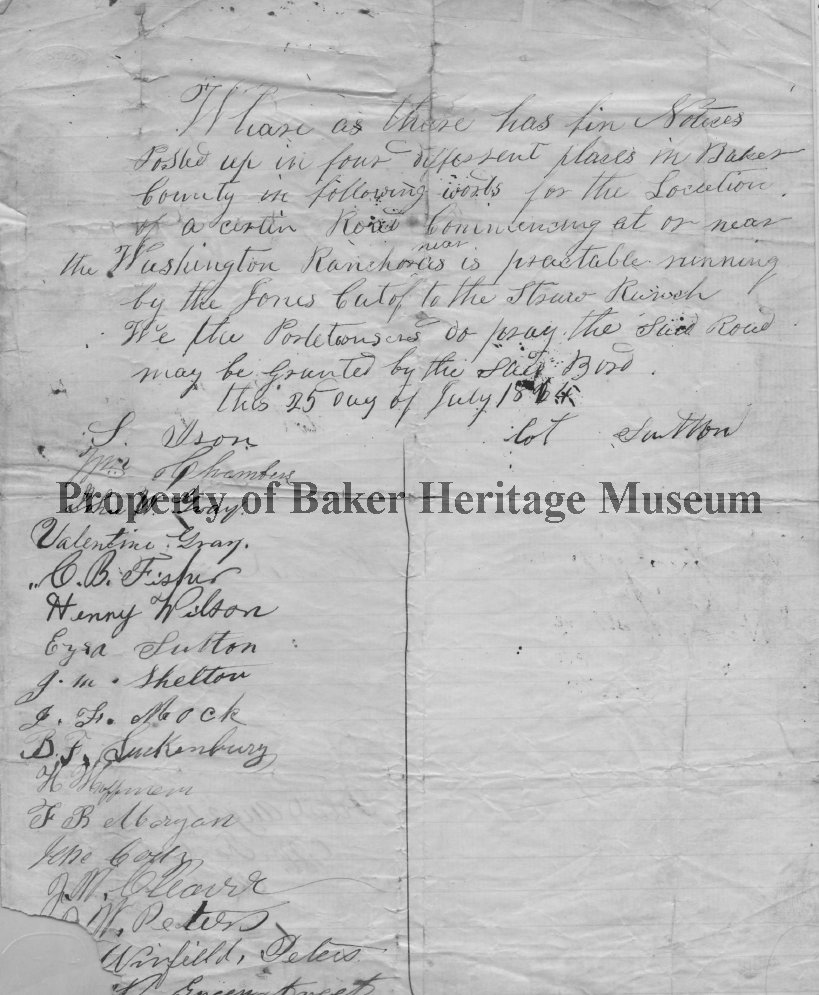 Whare as thare has bin Notices
Posted up in four different places in Baker
County in following words for the Location
of a certin Road Commencing at or near
near
the Washington Ranch or as is practable running
by the Jones Cutof to the Straw Ranch
We the do pray the Said Road
may be Granted by the Said Bord.
this 25 Day of July 1864
S. Ison
Col Sutton
Wm Chambers
Property of Baker Heritage Museum
Gray.
Valentine Gray.
C. B. Fisher
Henny Wilson
Ezra Sutton
J. M. Shelton
J. F. Mock
B. F.
H Hoffmein
F R Morgan
Jno Cody
J. M. Cleaver
W. Peters
Winfield, Peters